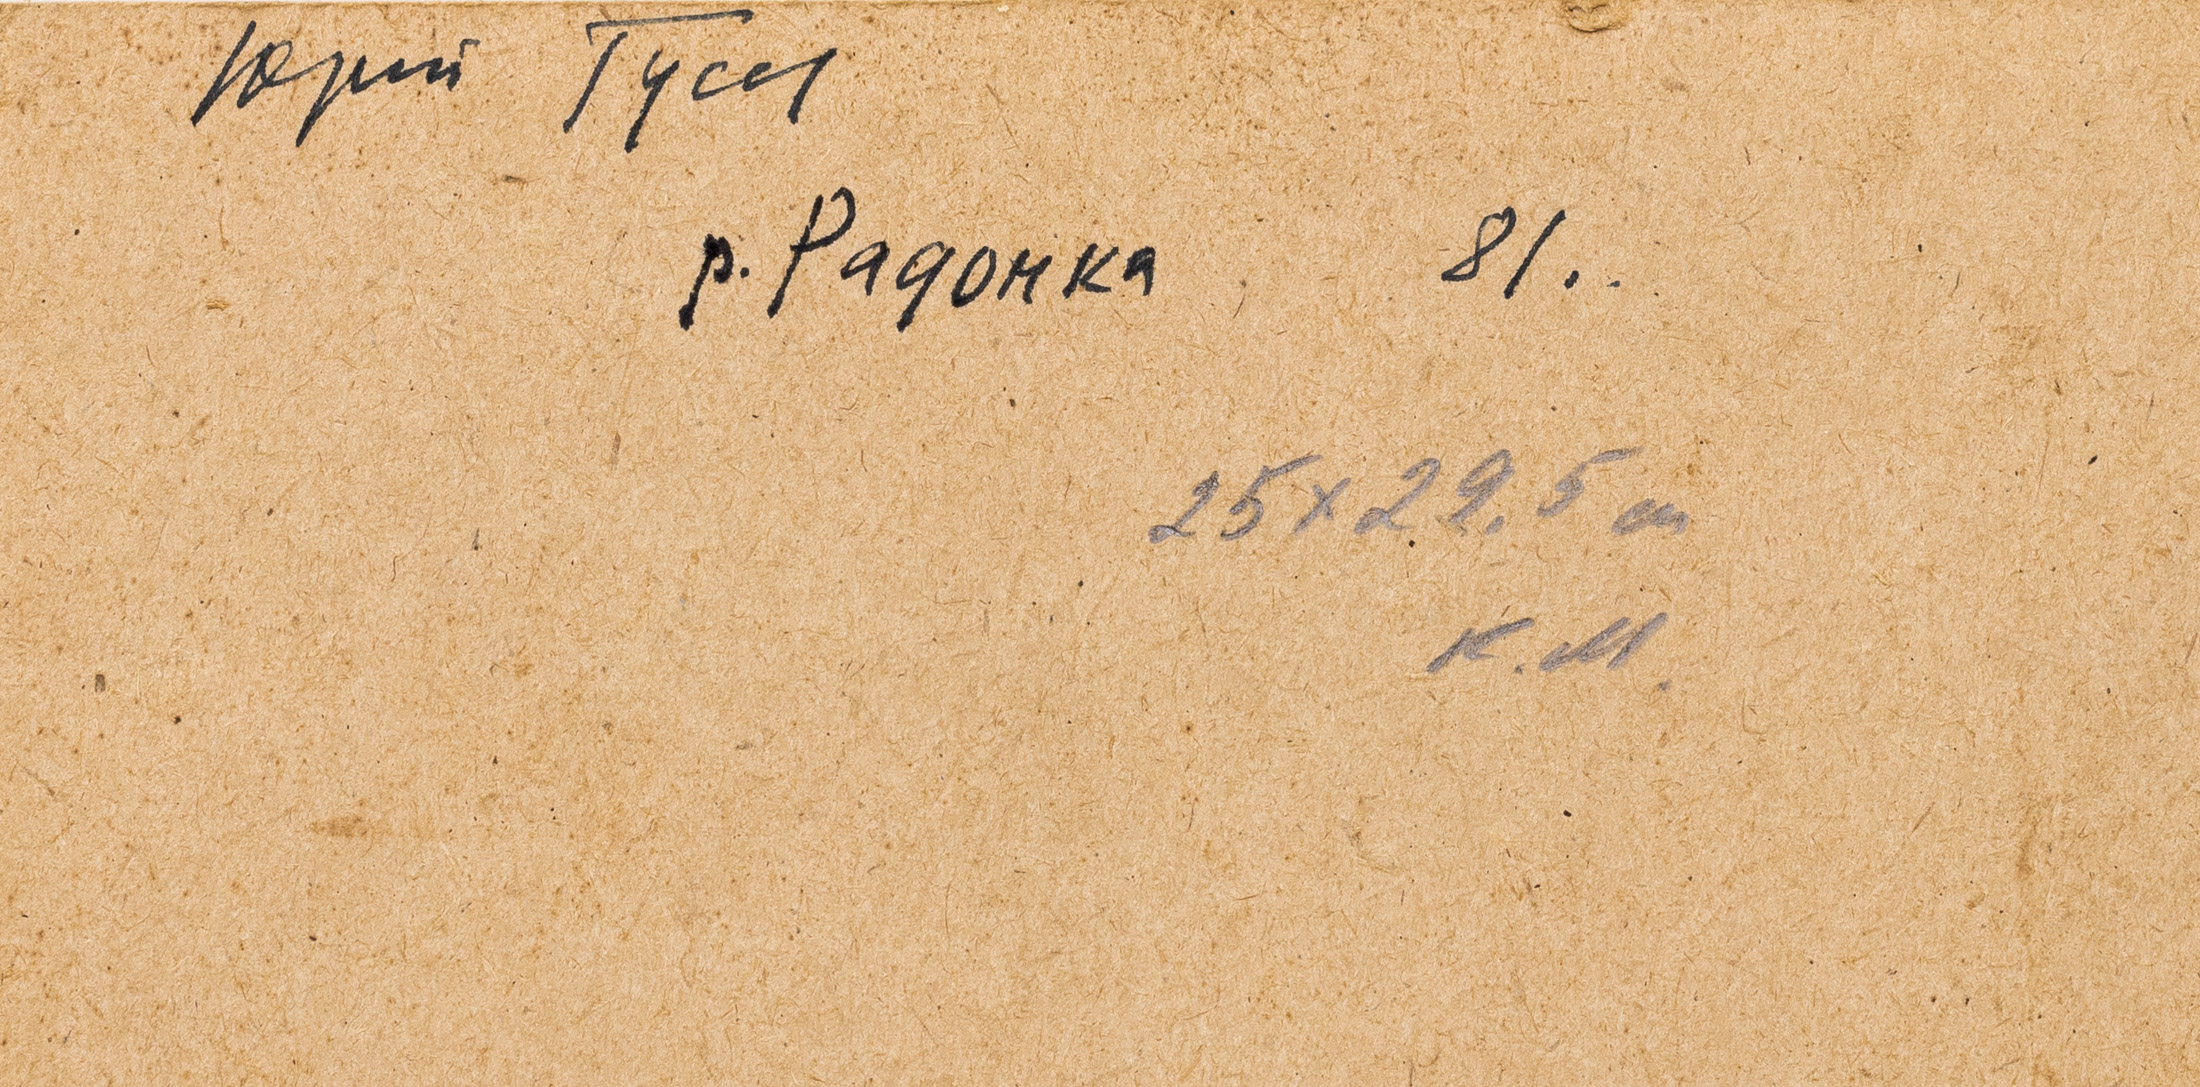 Юрий Гусев
р. Радонка 81..
25х29.5 см
К.М.